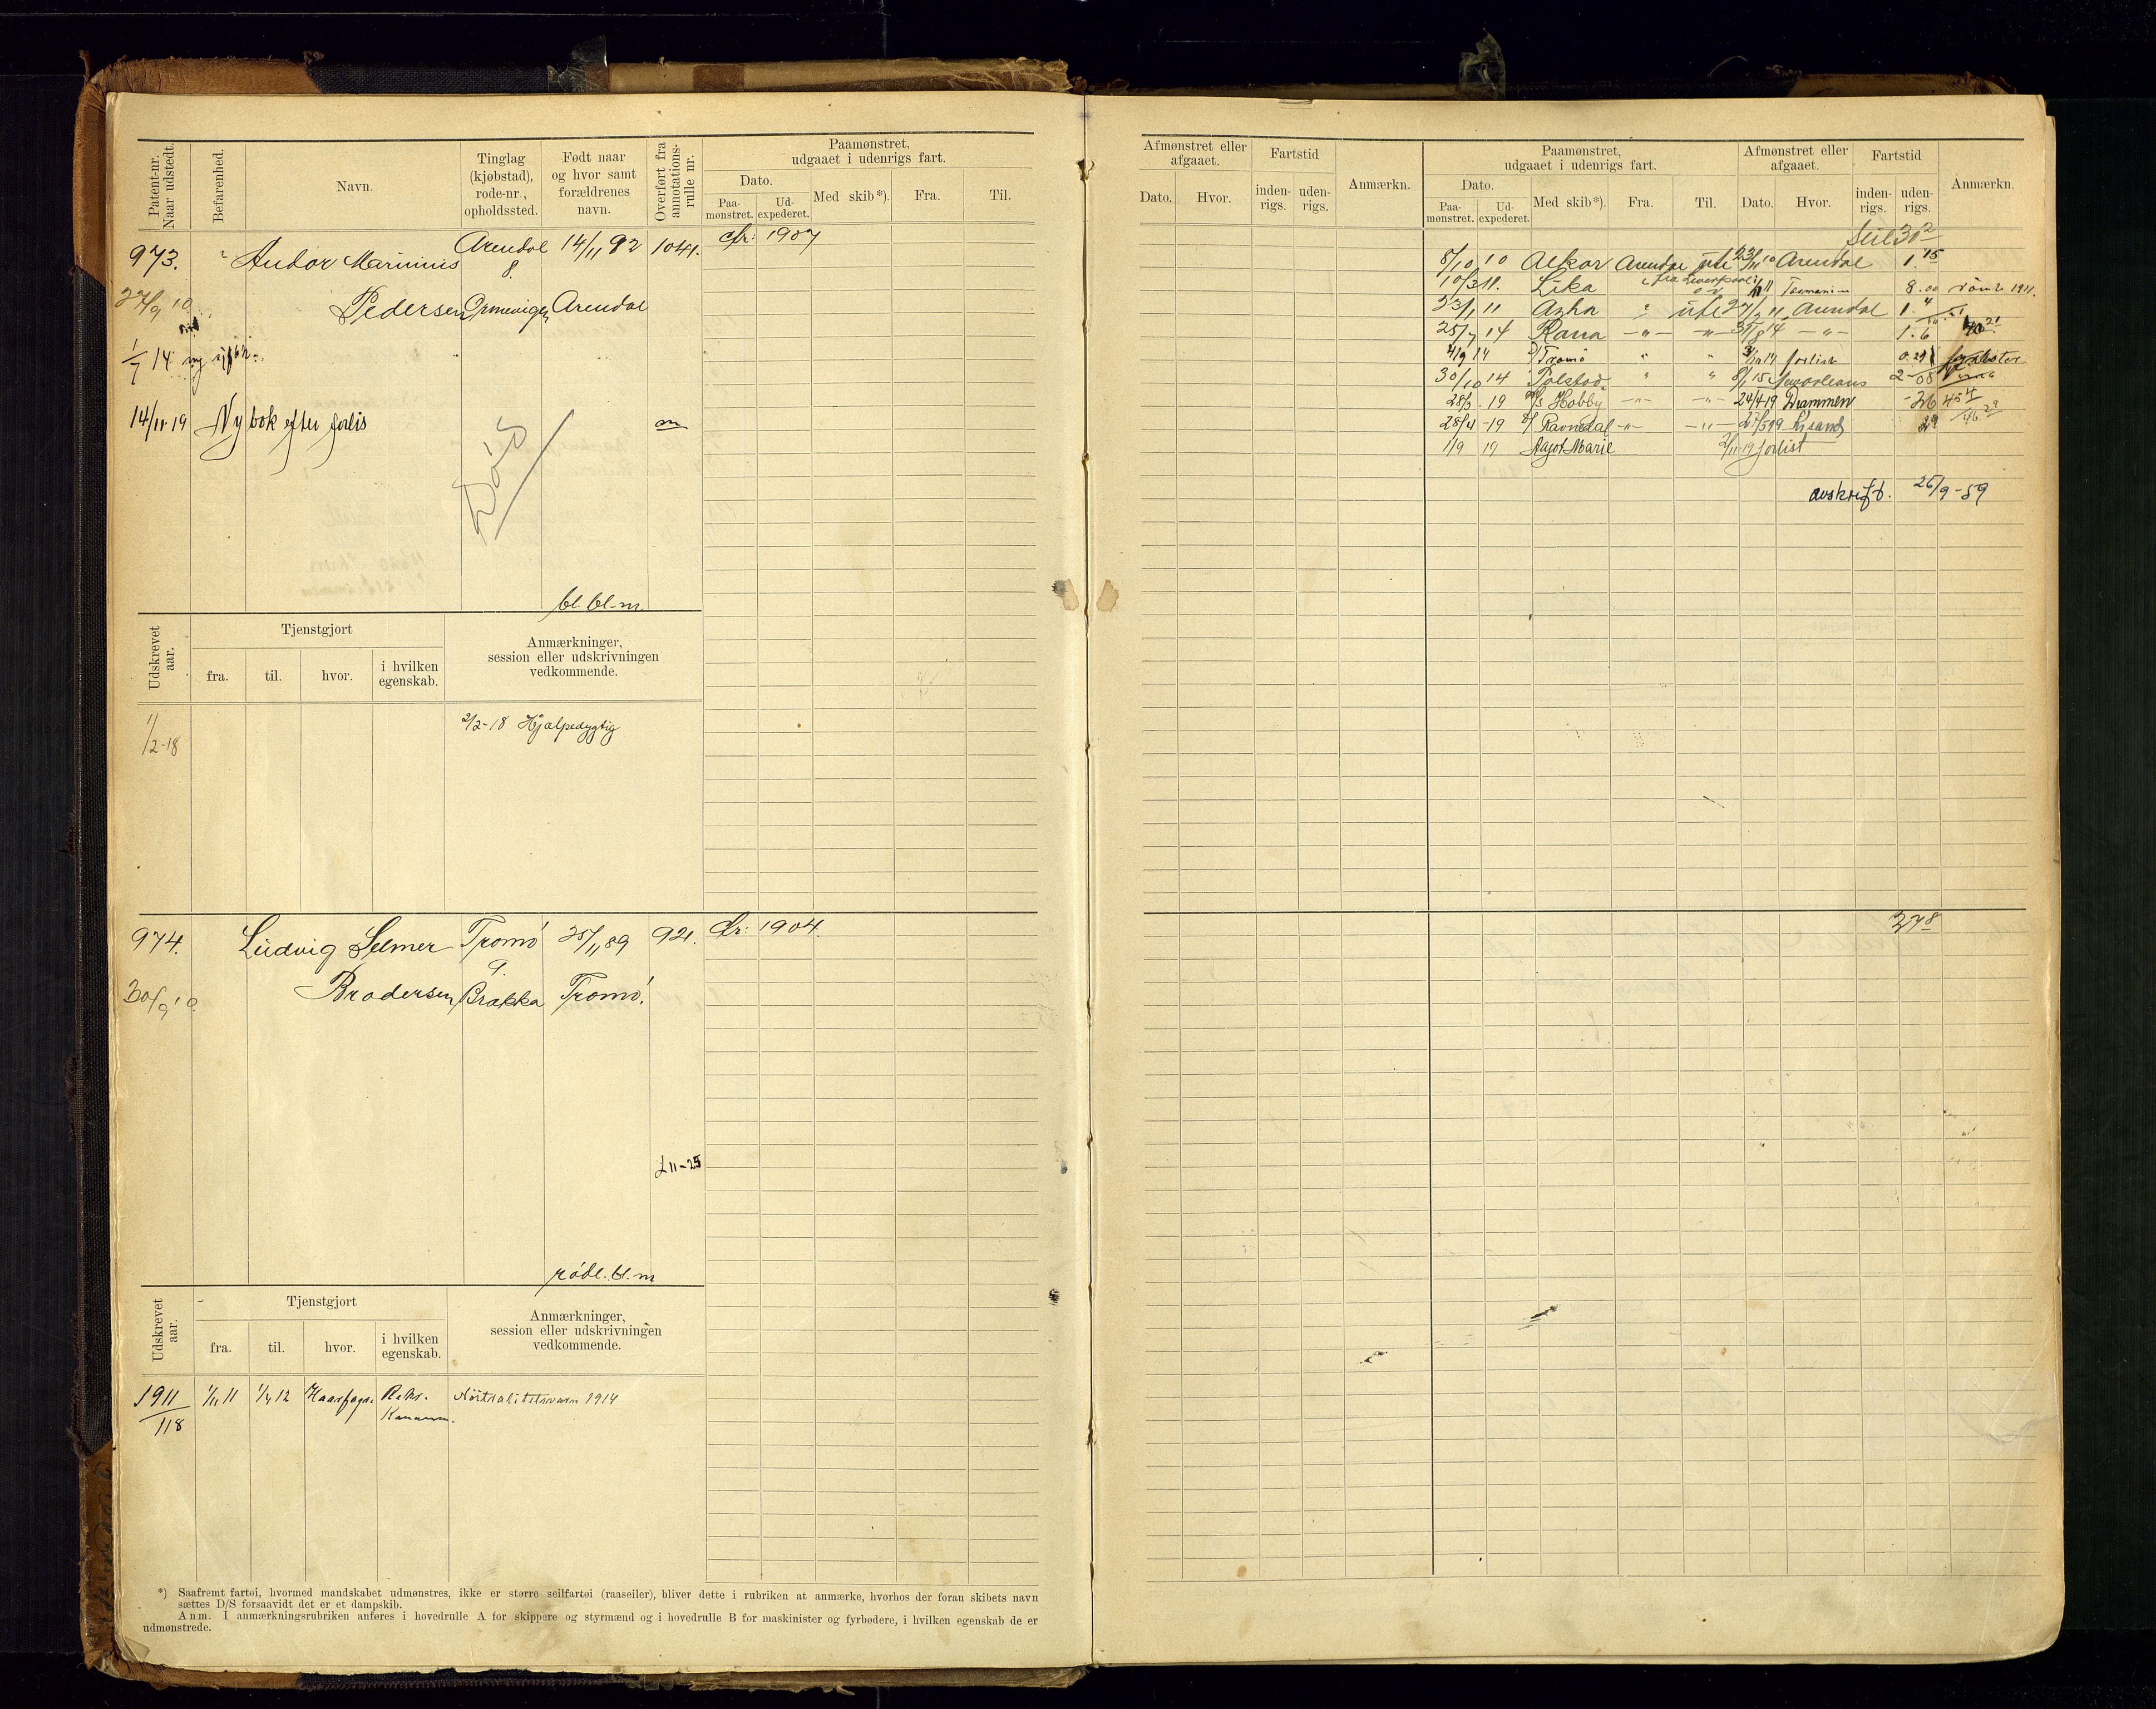 Patent-nr. Naar udstedt.
Befarenhed.
Navn.
Tinglag (kjøbstad), rode-nr., opholdssted.
Født naar og hvor samt forældrenes navn.
Overført fra annotations-rulle nr.
Paamønstret, udgaaet i udenrigs fart.
Dato.
Paa-mønstret.
Ud-expederet.
Med skib*).
Fra.
Til.
973. Andor Marinius Arendal 14/11 92 1041. cfr: 1907
8.
27/9 10 Pedersen Ormevigen Arendal
1/7 14 ny
14/11-19 Ny bok efter forlis
Døis
bl. bl. m
Udskrevet aar.
Tjenstgjort
fra.
til.
hvor.
i hvilken egenskab.
Anmærkninger, session eller udskrivningen vedkommende.
1/2-18 2/2-18 Hjælpedygtig
974. Ludvig Selmer Tromø 25/11 89 921. cfr: 1904.
9.
30/9 10 Brodersen Brækka Tromø.
£11-25
rødl. bl. m
Udskrevet aar.
Tjenstgjort
fra.
til.
hvor.
i hvilken egenskab.
Anmærkninger, session eller udskrivningen vedkommende.
1911 1/4 12 Haarfagre Nøitralitetsvern 1914
118
*) Saafremt fartøi, hvormed mandskabet udmønstres, ikke er større seilfartøi (raaseiler), bliver dette i rubriken at anmærke, hvorhos der foran skibets navn
sættes D/S forsaavidt det er et dampskib.
Anm. I anmærkningsrubriken anføres i hovedrulle A for skippere og styrmænd og i hovedrulle B for maskinister og fyrbødere, i hvilken egenskab de er
udmønstrede.
Afmønstret eller afgaaet.
Fartstid
Anmærkn.
Dato.
Hvor.
inden-rigs.
uden-rigs.
Paamønstret, udgaaet i udenrigs fart.
Afmønstret eller afgaaet.
Fartstid
Anmærkn.
Dato.
Paa-mønstret.
Ud-expederet.
Med skib*).
Fra.
Til.
Dato.
Hvor.
inden-rigs.
uden-rigs.
Seil 30
8/10 10 Alkor Arendal ute 10 Arendal 1. 15
10/3 11. Lika fra Liverpool 11 Tasmania 8.00 rømt 1911.
23/1 11 Azha " ute 11 Arendal 1. 4
25/7 14 Rana -"- -"- 14 -"- 1.6 40 21
4/9 14 Tromø " " 14 forlist 0.29
30/10 14 Polstad " " 8/1 15 Neworleans 2 08
28/3-19 M/S Hobby -"- -"- 24/4-19 Drammen 26 45 4
28/4-19 Ravnedal -"- -"- 19 Krsand 29 46 29
1/9 19 Aagot Marie 2/11-19 forlist
avskrift. 26/9-59